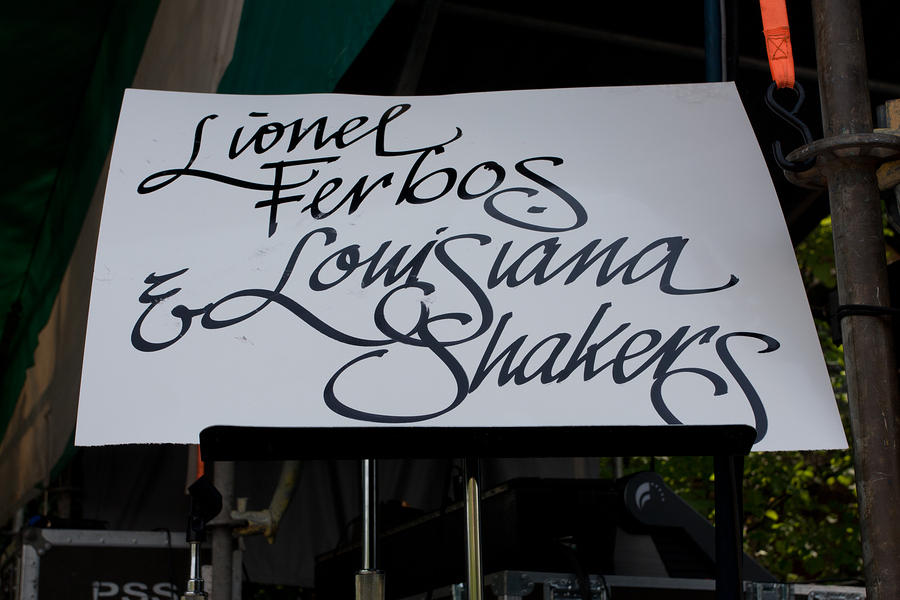 Lionel
Ferbos
& Louisiana
Shakers
PSS